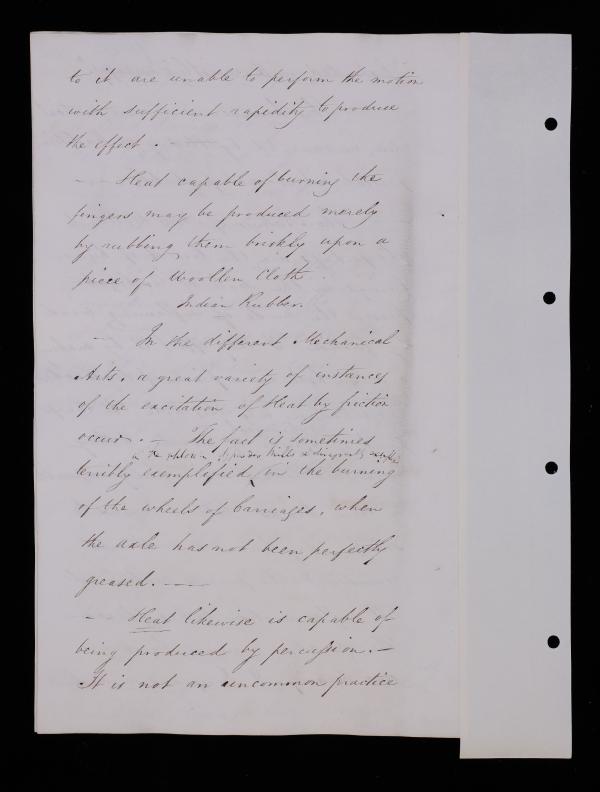 to it are unable to perform the motion
with sufficient rapidity to produce
the effect.
— Heat capable of burning the
fingers may be produced merely
by rubbing them briskly upon a
piece of Woollen Cloth.
Indian Rubber.
— In the different Mechanical
Arts, a great variety of instances
of the excitation of Heat by friction
occur. — The fact is sometimes
in the of powder mills &
terribly exemplified in the burning
of the wheels of Carriages, when
the axle has not been perfectly
greased. ——
— Heat likewise is capable of
being produced by percussion. —
It is not an uncommon practice